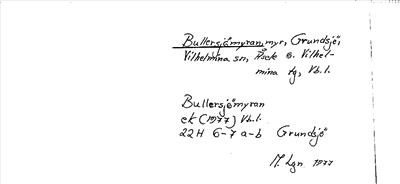 Bullersjömyran, myr, Grundsjö,
Vilhelmina sn, Åsele o. Vilhel-
mina tg, Vb.l.
Bullersjömyran
ek (1977) Vb.l.
22H 6-7 a-b Grundsjö
M. Lgn 1977